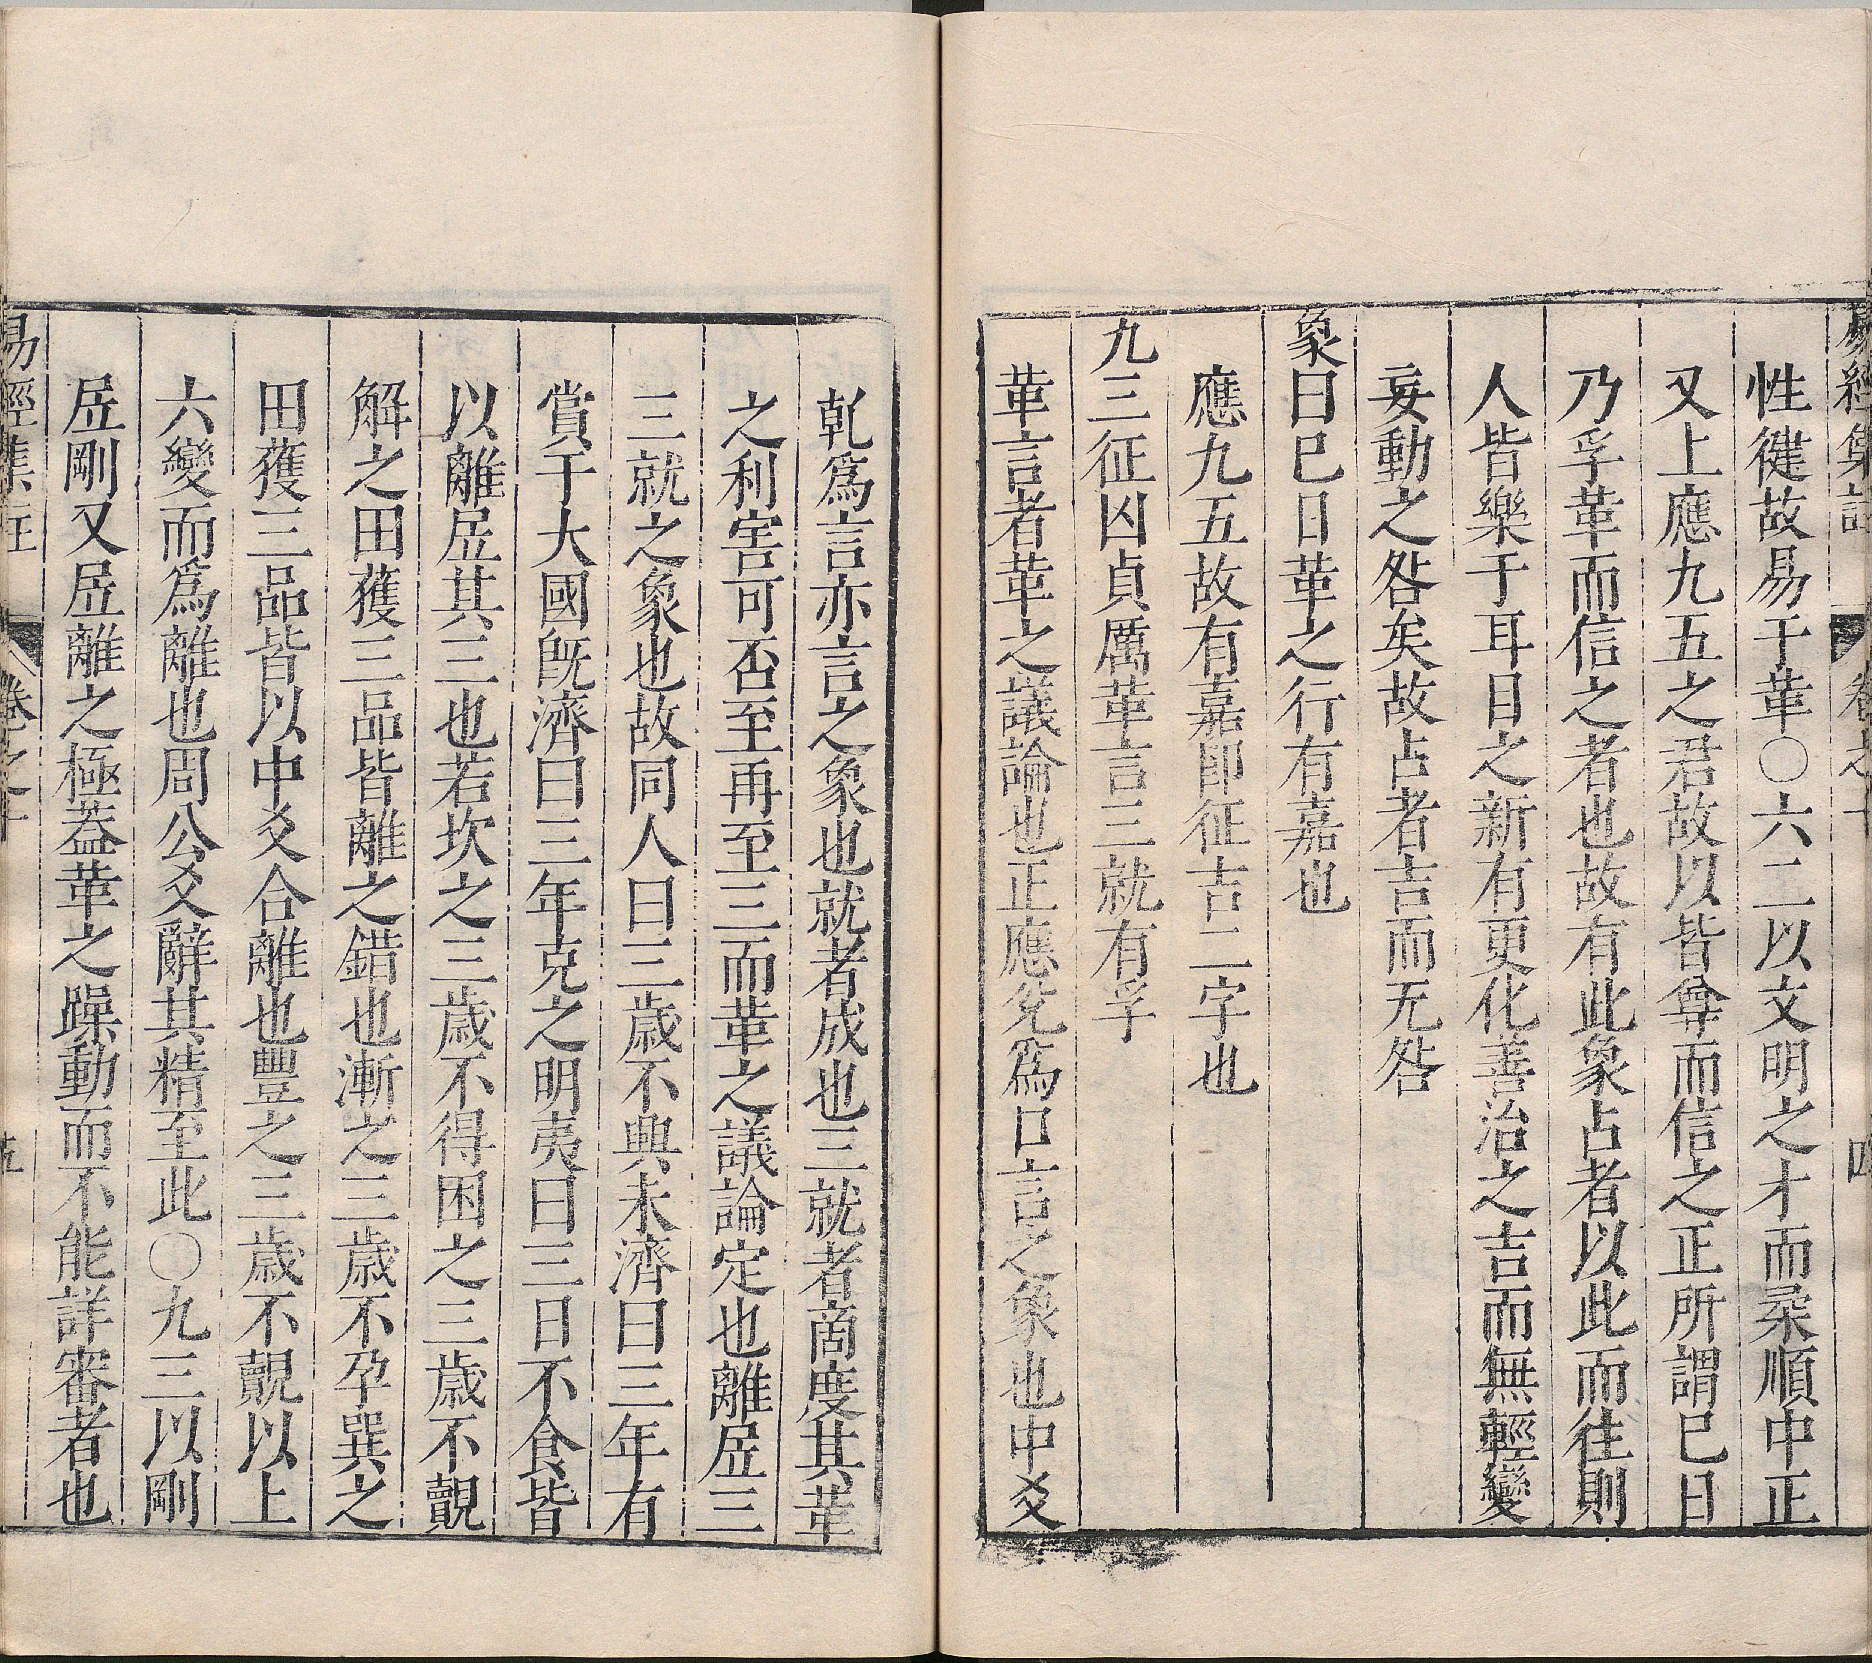 易經集註 卷之十 四
性徤故易于革〇六二以文明之才而柔順中正
又上應九五之君故以皆尊而信之正所謂巳日
乃孚革而信之者也故有此象占者以此而往則
人皆樂于耳目之新有更化善治之吉而無輕變
妄動之咎矣故占者吉而无咎
象曰巳日革之行有嘉也
應九五故有嘉即征吉二字也
九三征凶貞厲革言三就有孚
革言者革之議論也正應兊爲口言之象也中爻
乾爲言亦言之象也就者成也三就者商度其革
之利害可否至再至三而革之議論定也離居三
三就之象也故同人曰三歲不興未濟曰三年有
賞于大國旣濟曰三年克之明夷曰三日不食皆
以離居其三也若坎之三歲不得困之三歲不覿
解之田獲三品皆離之錯也漸之三歲不孕巽之
田獲三品皆以中爻合離也豐之三歲不覿以上
六變而爲離也周公爻辭其精至此〇九三以剛
居剛又居離之極葢革之躁動而不能詳審者也
易經集註 卷之十